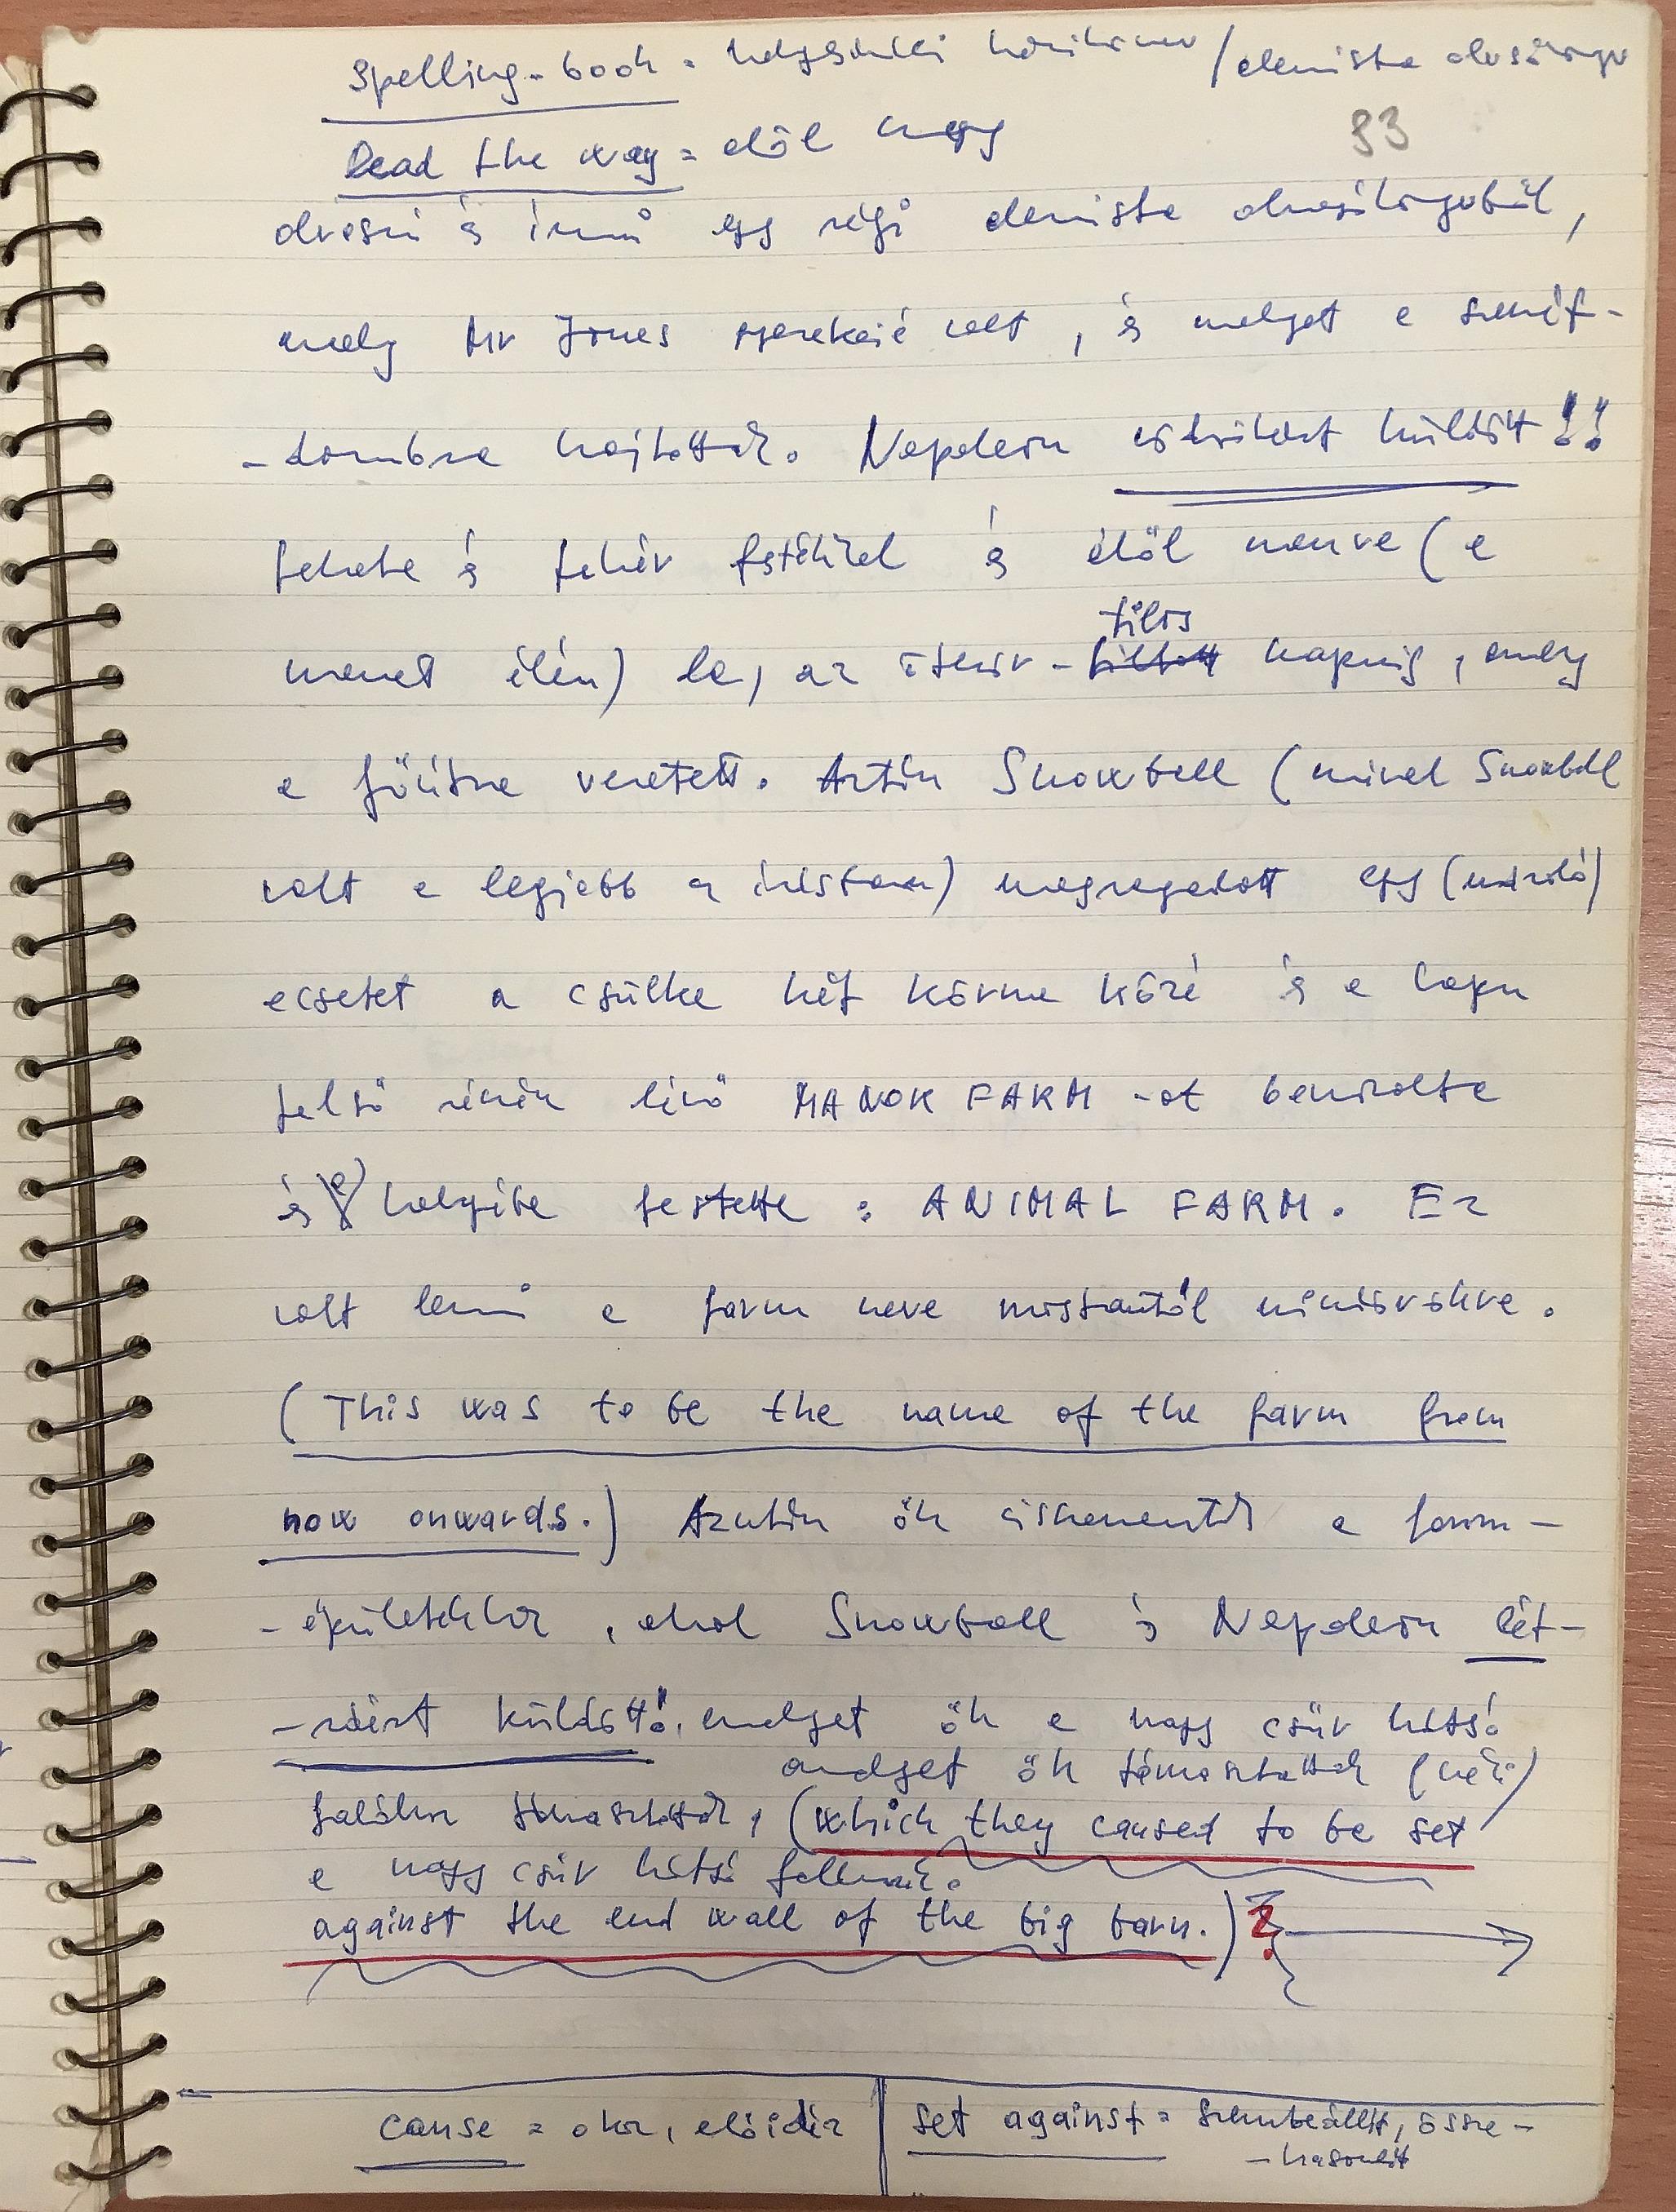 Spelling-book = helyesírási kézikönyv / elemista olvasókönyv
93
Lead the way = elöl megy
olvasni és írni egy régi elemista olvasókönyvből,
mely Mr Jones gyerekeié volt, és melyet a szemét-
-dombra hajítottak. Napoleon küldött!!
fekete és fehér festékkel és elöl menve (a
menet élén) le, az ötsor-tilos kapuig, mely
a főútra vezetett. Aztán Snowball (mivel Snowball
volt a legjobb az írásban) megragadott egy (mázoló)
ecsetet a csülke két körme közé és a kapu
felső részén lévő MANOR FARM -ot bemázolta
és helyébe festette: ANIMAL FARM. Ez
volt lenni a farm neve mostantól mindörökre.
(This was to be the name of the farm from
now onwards.) Azután ők visszamentek a farm-
-épületekhez, ahol Snowball és Napoleon lét-
-ráért küldött!, melyet ők a nagy csűr hátsó
amelyet ők támasztattak (neki)
falához támasztottak, (which they caused to be set
a nagy csűr hátsó falának.
against the end wall of the big barn.) ?
cause = okoz, előidéz
set against = szembeállít, össze-
-hasonlít